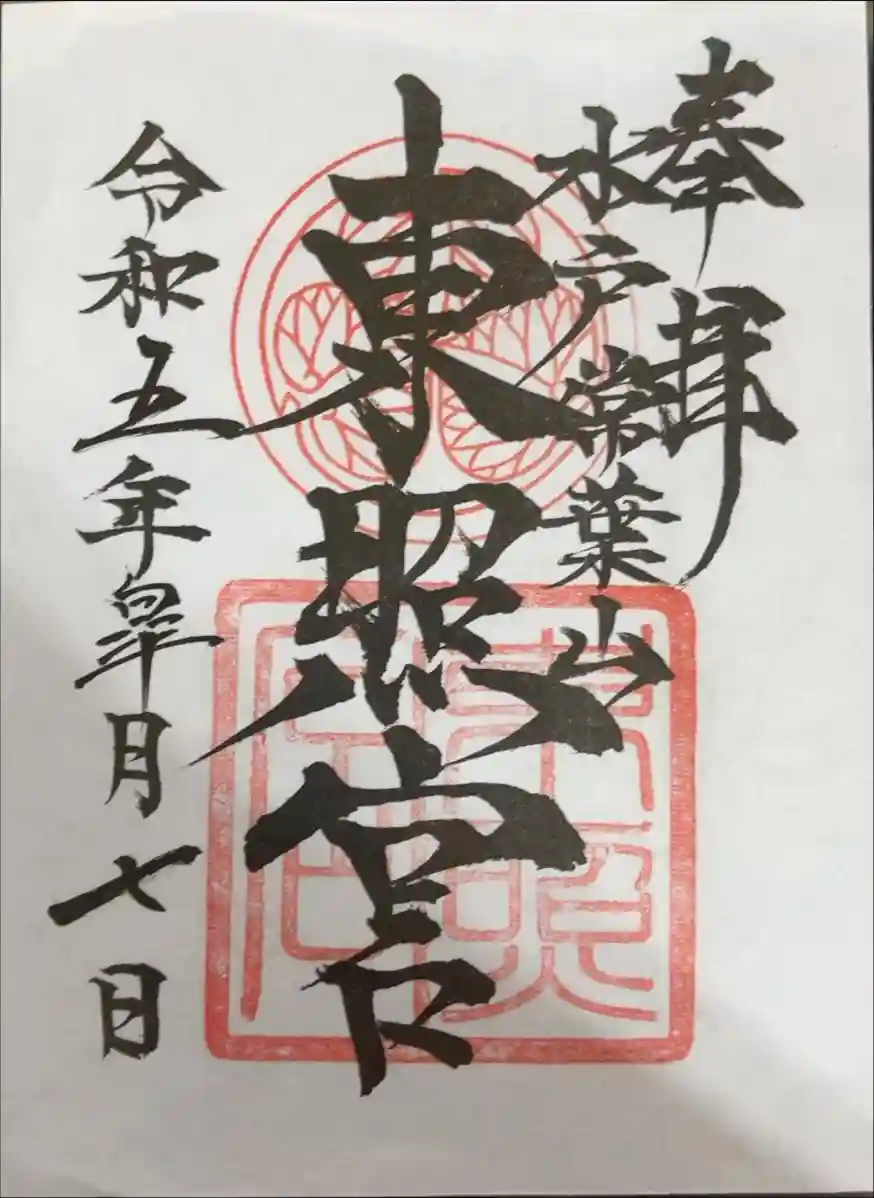 奉拝
水戸常葉山
東照宮
東照宮
令和五年皐月七日